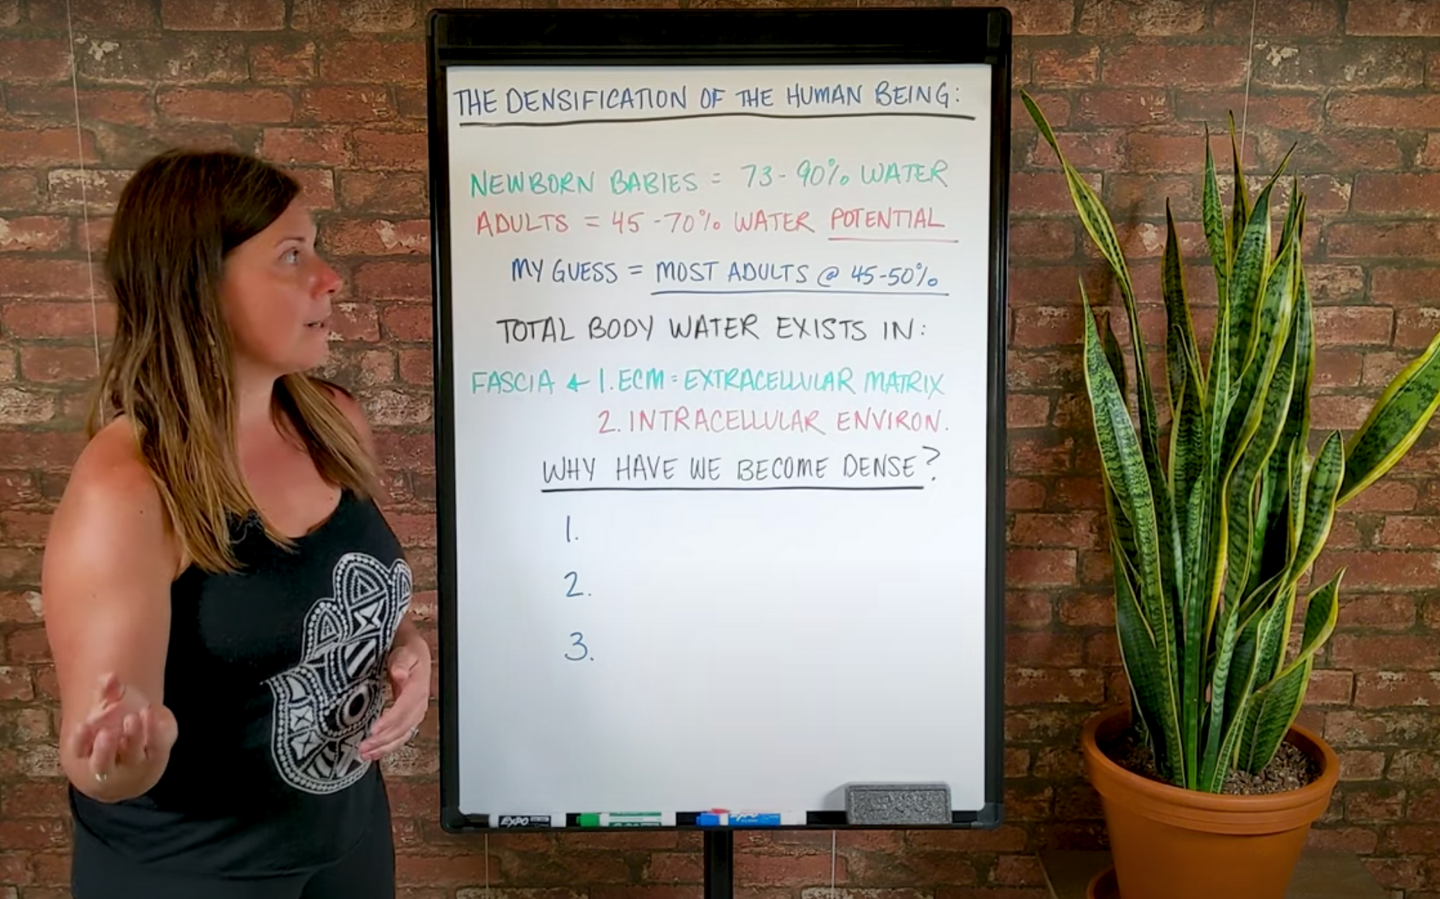 THE DENSIFICATION OF THE HUMAN BEING:
NEWBORN BABIES = 73-90% WATER
ADULTS = 45-70% WATER POTENTIAL
MY GUESS = MOST ADULTS @ 45-50%
TOTAL BODY WATER EXISTS IN:
FASCIA ← 1. ECM = EXTRACELLULAR MATRIX
2. INTRACELLULAR ENVIRON.
WHY HAVE WE BECOME DENSE?
1.
2.
3.
EXPO